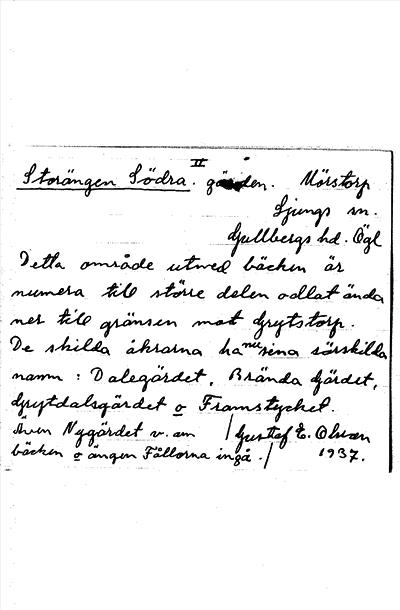 II
Storängen Södra. gården. Mörstorp
Ljungs sn.
Gullbergs hd. Ögl
Detta område utmed bäcken är
numera till större delen odlat ända
ner till gränsen mot Grytstorp.
De skilda åkrarna ha nu sina särskilda
namn: Dalegärdet, Brända Gärdet,
Grytdalsgärdet o Framstycket.
Även Nygärdet v. om
bäcken o ängen Fållorna ingå.
Gustaf E. Olsson
1937.